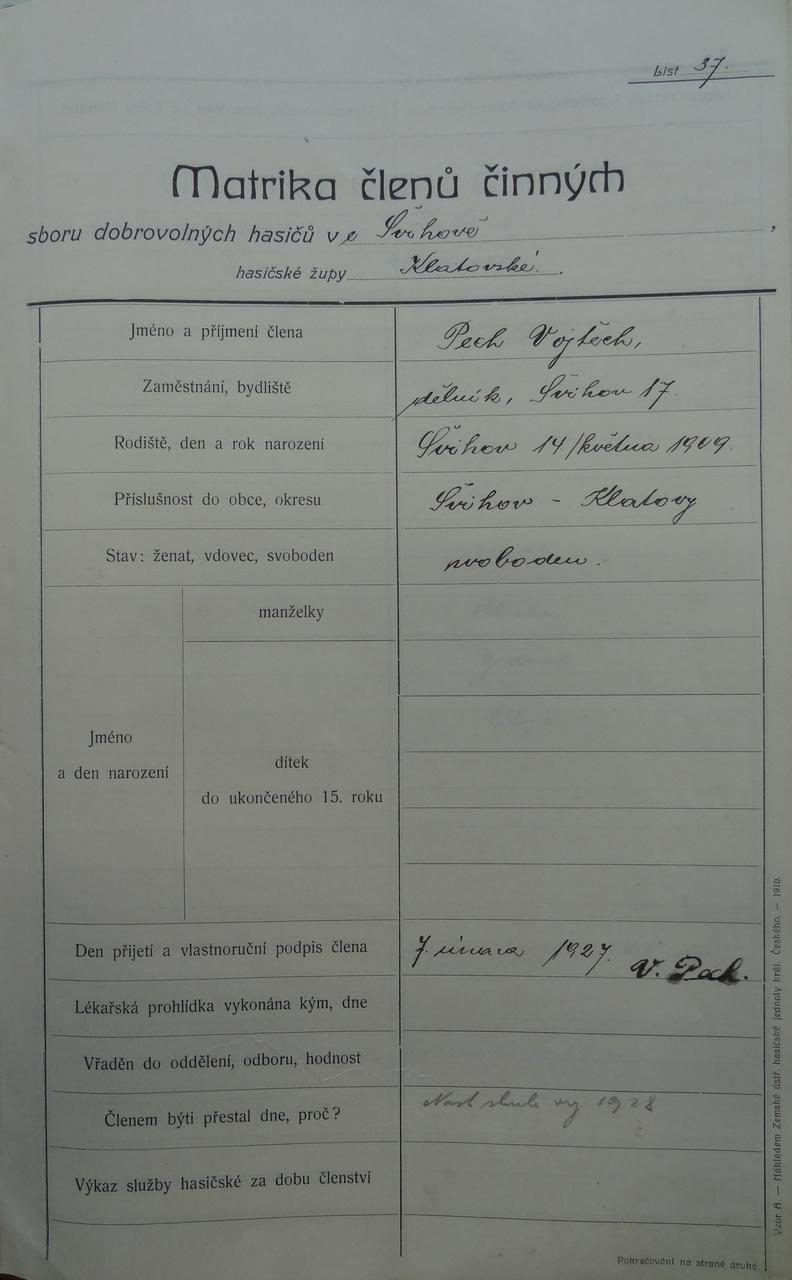 List 37.
Matrika členů činných
sboru dobrovolných hasičů ve Švihově,
hasičské župy Klatovské.
Jméno a příjmení člena Pech Vojtěch,
Zaměstnání, bydliště dělník, Švihov 17.
Rodiště, den a rok narození Švihov 14/května 1909.
Příslušnost do obce, okresu Švihov - Klatovy
Stav: ženat, vdovec, svoboden svoboden.
Jméno
a den narození
manželky
dítek
do ukončeného 15. roku
Den přijetí a vlastnoruční podpis člena 7. února 1927. V. Pech.
Lékařská prohlídka vykonána kým, dne
Vřaděn do oddělení, odboru, hodnost
Členem býti přestal dne, proč? 1928
Výkaz služby hasičské za dobu členství
Pokračování na straně druhé.
Vzor A. — Nákladem Zemské ústř. hasičské jednoty král. Českého. — 1910.